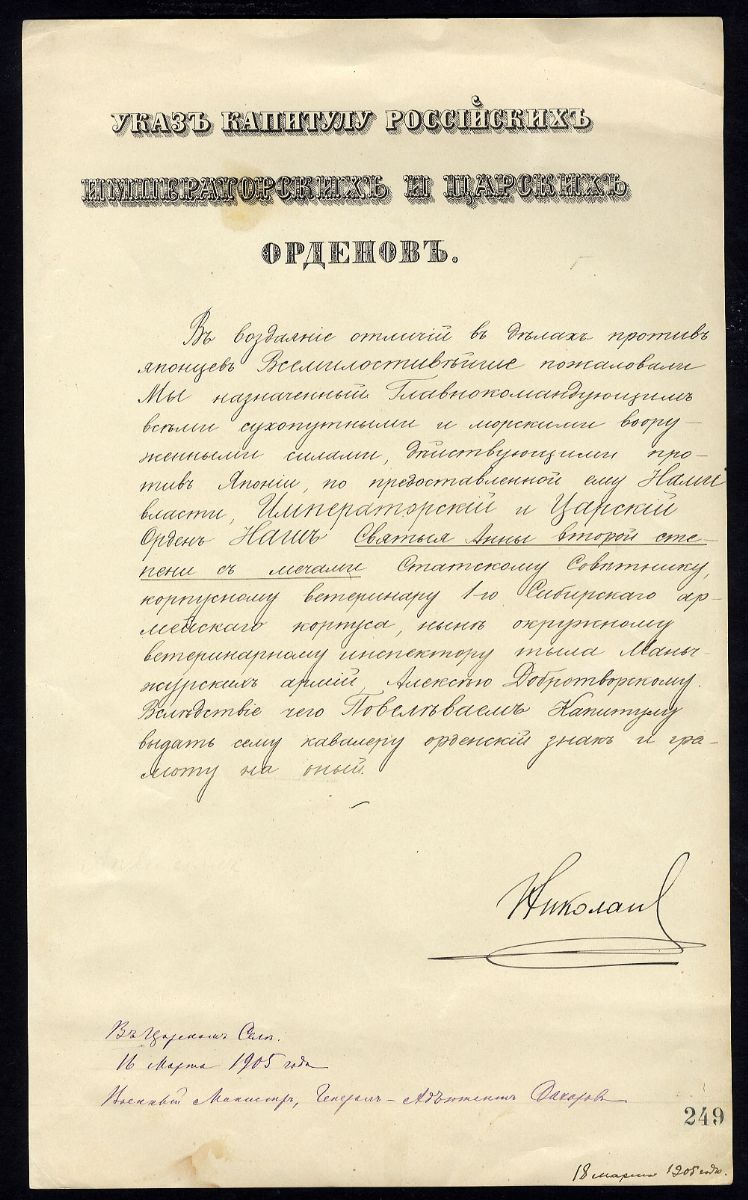 УКАЗЪ КАПИТУЛУ РОССІЙСКИХЪ
ИМПЕРАТОРСКИХЪ И ЦАРСКИХЪ
ОРДЕНОВЪ.
Въ воздаяніе отличій въ дѣлахъ противъ
японцевъ Всемилостивѣйше пожаловали
Мы назначенный Главнокомандующимъ
всѣми сухопутными и морскими воору-
женными силами, дѣйствующими про-
тивъ Японіи, по предоставленной ему Нами
власти, Императорскій и Царскій
Орденъ Нашъ Святыя Анны второй сте-
пени съ мечами Статскому Совѣтнику,
корпусному ветеринару 1-го Сибирскаго ар-
мейскаго корпуса, нынѣ окружному
ветеринарному инспектору тыла Мань-
чжурскихъ армій, Алексѣю Добротворскому.
Вслѣдствіе чего Повелѣваемъ Капитулу
выдать сему кавалеру орденскій знакъ и гра-
моту на оный.
Николай
Въ Царскомъ Селѣ.
16 Марта 1905 года
Военный Министръ, Генералъ-Адъютантъ Сахаровъ
249
18 марта 1905 году.